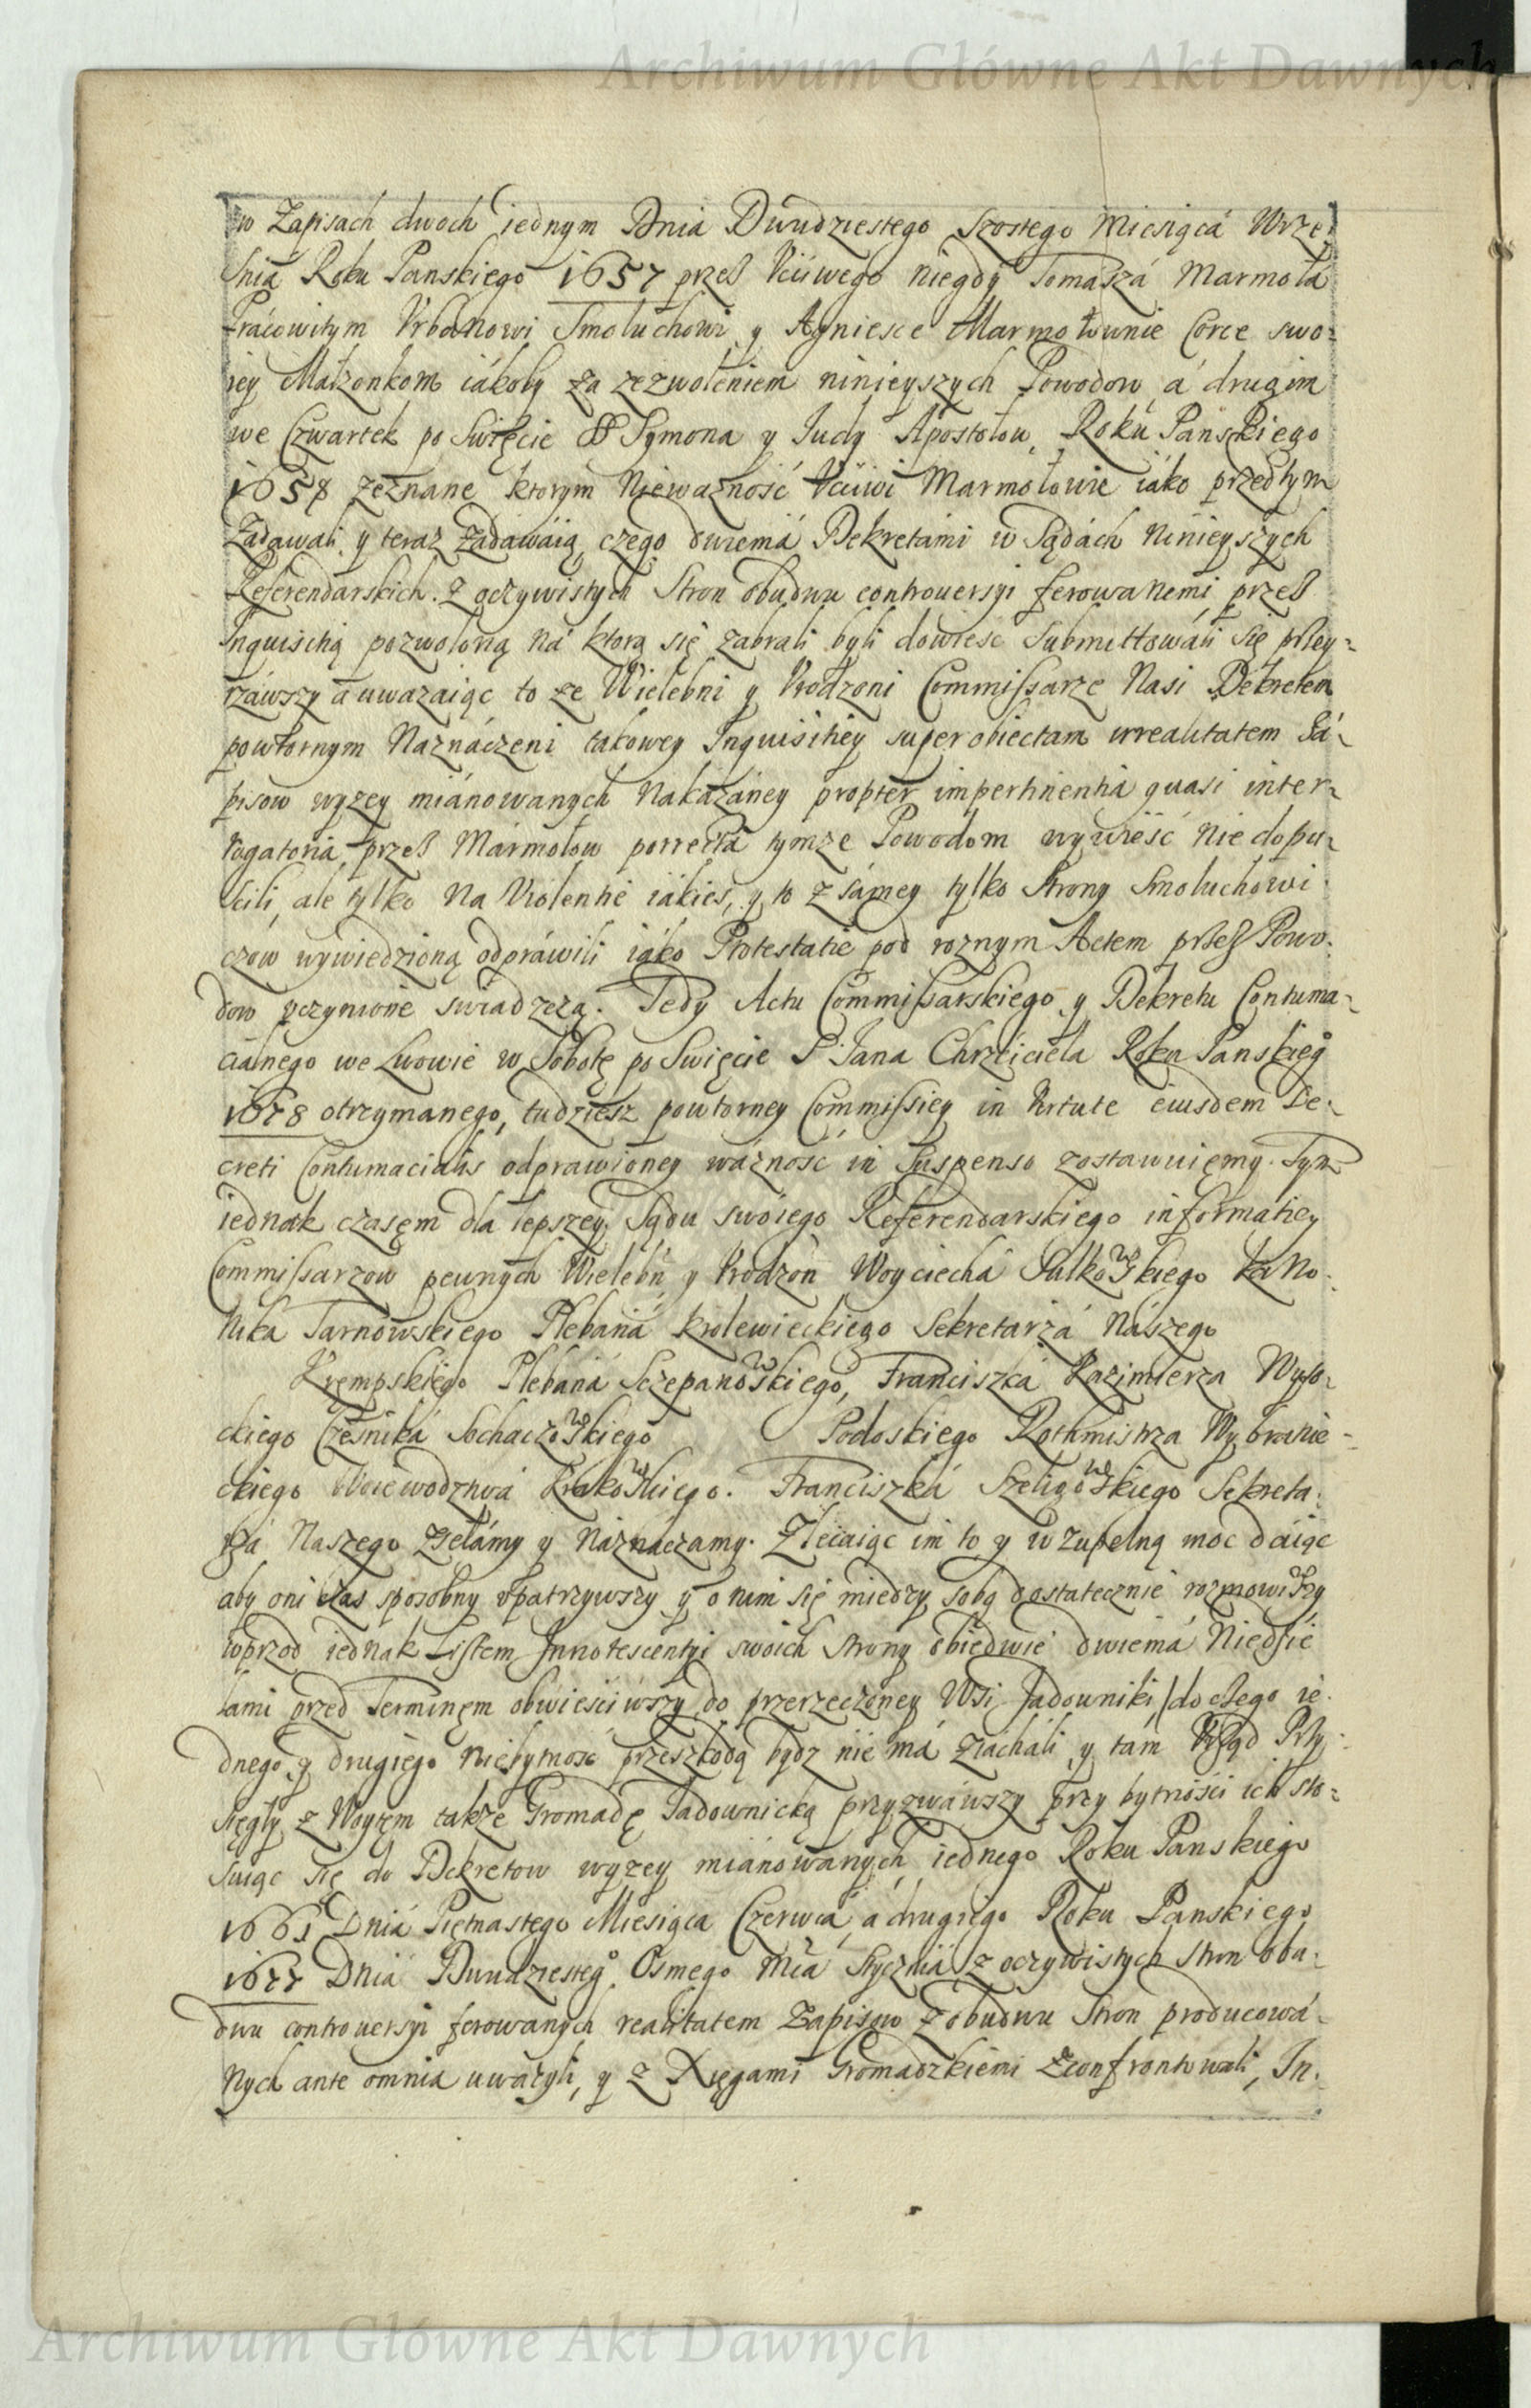 Archiwum Główne Akt Dawnych
w Zapisach dwoch iednym Dnia Dwudziestego szostego Miesiącá Wrze
śniá Roku Panskiego 1657 przeß Vcżiwego niegdy Tomaszá Marmołá
Prácowitym Vrbanowi Smoluchowi y Agniesce Marmołownie Corce swo-
iey Małzonkom iákoby za zezwoleniem ninieyszych Powodow á drugim
we Czwartek po Swięcie SS Symona y Judy Apostołow, Roku Panskiego
1658 zeznane, ktorym Niewaznosć Vcżiwi Marmołowie iáko przedtym
Zadawali y teraz Zadawáią, czego dwiemá Dekretámi w Sądách Ninieyszych
Referendarskich z oczywistych Stron obudwu controuersyi ferowanemi, przeß
Inquisitią pozwoloną ná ktorą się zabrali byli dowiesć Submittowáli się przey-
rzáwszy á uwazaiąc to ze Wielebni y Vrodzeni Commissarze Nasi Dekretem
powtornym Naznáczeni tákowey Inquisitiey super obiectam irrealitatem Zá-
pisow wyzey miánowanych Nakázáney propter impertinentiá quasi inter-
rogatoria przeß Mármołow porrectá tymze Powodom wywieść nie dopu-
ścili, ale tylko Na Violentie iákieś, y to z sámey tylko Strony Smoluchowi
czow wywiedzioną odpráwili iáko Protestatie pod roznym Actem przeß Powo-
dow vczynione swiadczą. Tedy Actu Commissarskiego y Dekretu Contuma-
cialnego we Lwowie w Sobotę po Swięcie S. Jana Chrzciciela Roku Panskieg°
1678 otrzymanego, tudziesz powtorney Commissiey in Virtute eiusdem De-
creti Contumacialis odprawioney wáznosć in Suspenso zostawuięmy. Tym
iednak czasęm dla lepszey Sądu swoiego Referendarskiego informatiey
Commissarzow pewnych Wielebn y Vrodzon Woyciechá Salkowskiego Kano-
niká Tarnowskiego Plebaniá Krolewieckiego Sekretarzá Nászego
Krempskiego Plebaná Sczepanowskiego, Franciszká Kazimierza Wyso-
ckiego Czesniká Sochaczowskiego Podoskiego Rothmistrza Wybranie-
ckiego Woiewodztwá Krakowskiego. Franciszká Szeligowskiego Sekreta-
rzá Naszego Zsełámy y Náznáczamy. Zlecaiąc im to y w zupełną moc dáiąc
aby oni czas sposobny vpatrzywszy y o nim się miedzy sobą dostatecznie rozmowiwszy
wprzod iednak Listem Innotescentyi swoich Strony obiedwie dwiemá Niedzie
lami przed Terminęm obwieściwszy do przerzeczoney Wsi Jadowniki, /do czego ie-
dnego y drugiego niebytnosć przeszkodą bydz nie má/ Ziácháli, y tám Vrząd Przy-
sięgły z Woytęm takze Gromadę Jadownicką przyzwáwszy przy bytnosci ich sto-
suiąc się do Dekretow wyzey miánowanych, iednego Roku Panskiego
1661 Dniá Piętnastego Miesiąca Czerwcá, á drugiego Roku Panskiego
1677 Dniá Dwudziesteg° Osmego Mcá Styczniá z oczywistych Stron obu-
dwu controuersyi ferowanych realitatem Zapisow z obudwu Stron producowá-
nych ante omnia uwázyli, y z Xięgami Gromadzkiemi Zconfrontowali, In-
Archiwum Główne Akt Dawnych